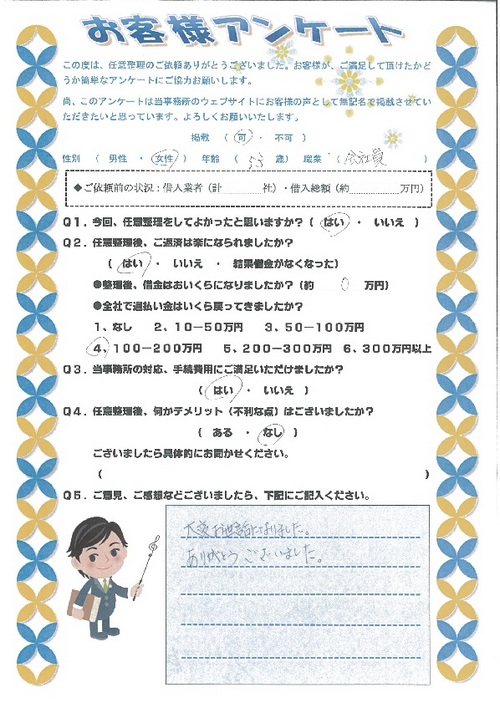 お客様アンケート
この度は、任意整理のご依頼ありがとうございました。お客様が、ご満足して頂けたかど
うか簡単なアンケートにご協力お願いします。
尚、このアンケートは当事務所のウェブサイトにお客様の声として無記名で掲載させてい
ただきたいと思っています。よろしくお願いいたします。
掲載 ( 可 ・ 不可 )
性別 ( 男性 ・ 女性 ) 年齢 ( 53 歳) 職業 ( 会社員 )
◆ご依頼前の状況:借入業者(計 社)・借入総額(約 万円)
Q1.今回、任意整理をしてよかったと思いますか?( はい ・ いいえ )
Q2.任意整理後、ご返済は楽になられましたか?
( はい ・ いいえ ・ 結果借金がなくなった)
●整理後、借金はおいくらになりましたか?(約 0 万円)
●全社で過払い金はいくら戻ってきましたか?
1、なし 2、10-50万円 3、50-100万円
4、100-200万円 5、200-300万円 6、300万円以上
Q3.当事務所の対応、手続費用にご満足いただけましたか?
( はい ・ いいえ )
Q4.任意整理後、何かデメリット(不利な点)はございましたか?
( ある ・ なし )
ございましたら具体的にお聞かせください。
( )
Q5.ご意見、ご感想などございましたら、下記にご記入ください。
大変お世話になりました。
ありがとうございました。